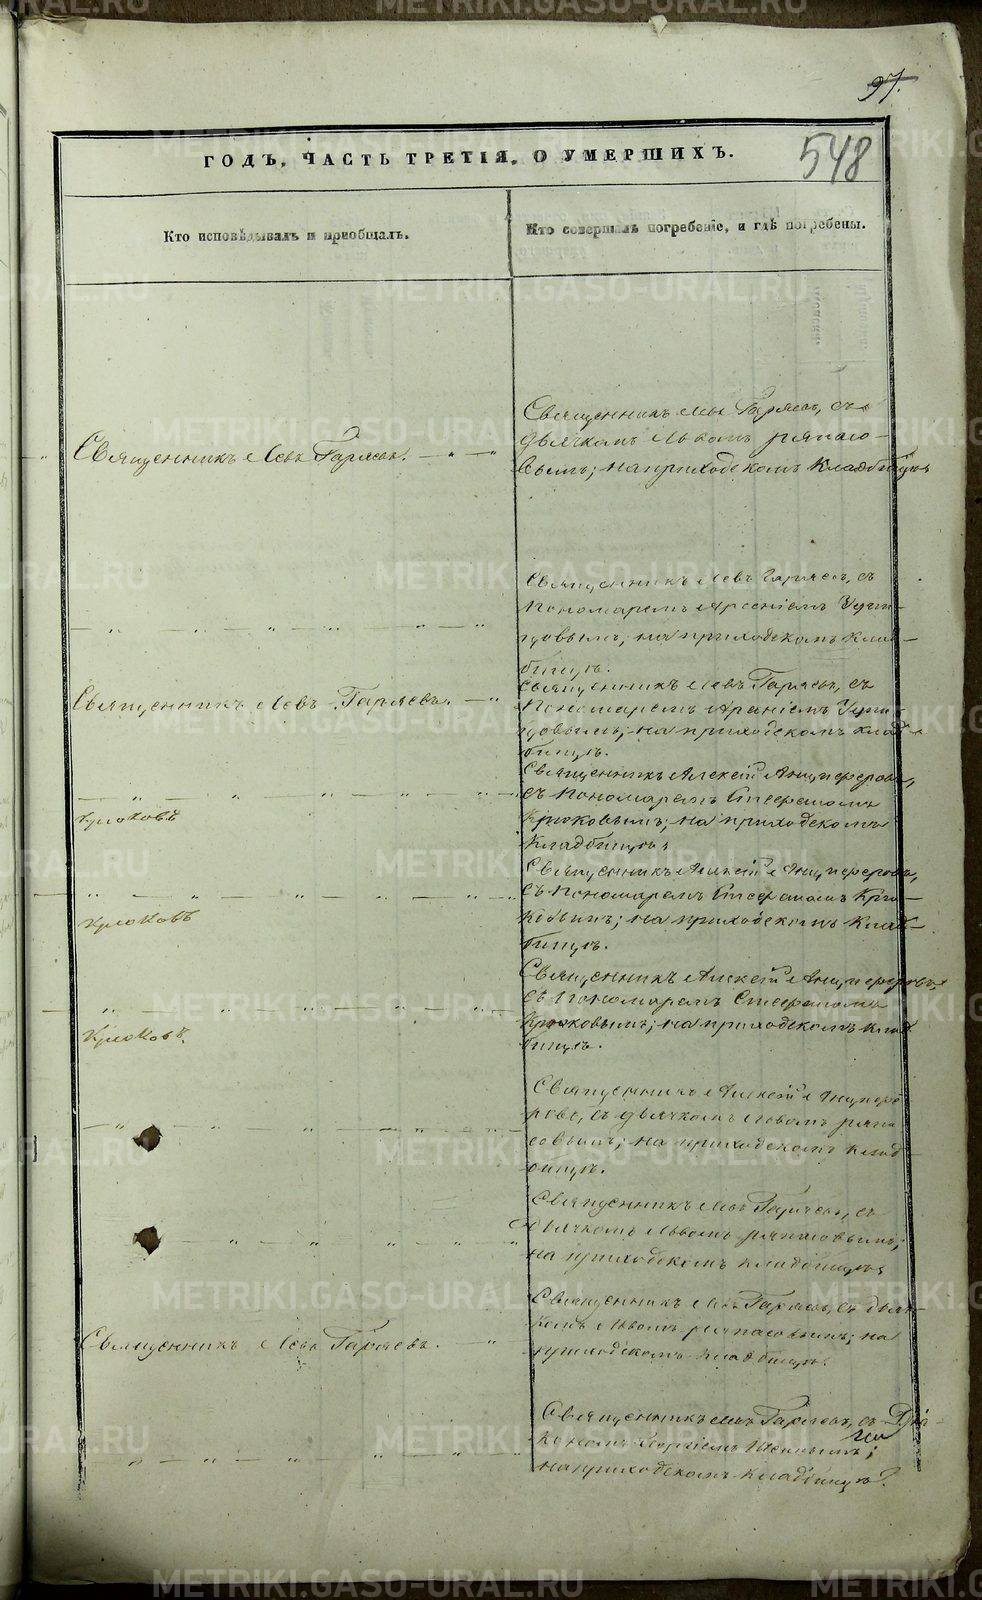 97.
548
ГОДЪ, ЧАСТЬ ТРЕТІЯ, О УМЕРШИХЪ.
Кто исповѣдывалъ и пріобщалъ.
Кто совершалъ погребеніе, и гдѣ погребены.
Священникъ Левъ Гаряевъ.
Священникъ Левъ Гаряевъ, съ
дьячкомъ Львомъ
на приходскомъ кладбищѣ
Священникъ Левъ Гаряевъ, съ
Пономаремъ Арсеніемъ
на приходскомъ клад-
бищѣ.
Священникъ Левъ Гаряевъ.
Священникъ Левъ Гаряевъ, съ
Пономаремъ
на приходскомъ клад-
бищѣ.
Крюковъ
Священникъ Алексій Анциферовъ,
съ Пономаремъ Стефаномъ
Крюковымъ; на приходскомъ
Кладбищѣ.
Крюковъ
Священникъ Алексій Анциферовъ,
съ Пономаремъ Стефаномъ Крю-
ковымъ; на приходскомъ клад-
бищѣ.
Крюковъ.
Священникъ Алексій Анциферовъ
съ Пономаремъ Стефаномъ
Крюковымъ; на приходскомъ клад
бищѣ.
Священникъ Алексій Анцифе
ровъ, съ дьячкомъ Львомъ
на приходскомъ клад-
бищѣ.
Священникъ Левъ Гаряевъ, съ
дьячкомъ Львомъ
на приходскомъ кладбищѣ
Священникъ Левъ Гаряевъ.
Священникъ Левъ Гаряевъ, съ дьяч-
комъ Львомъ на
приходскомъ кладбищѣ.
Священникъ Левъ Гаряевъ, съ Діа-
кономъ Георгіемъ
на приходскомъ кладбищѣ.
METRIKI.GASO-URAL.RU